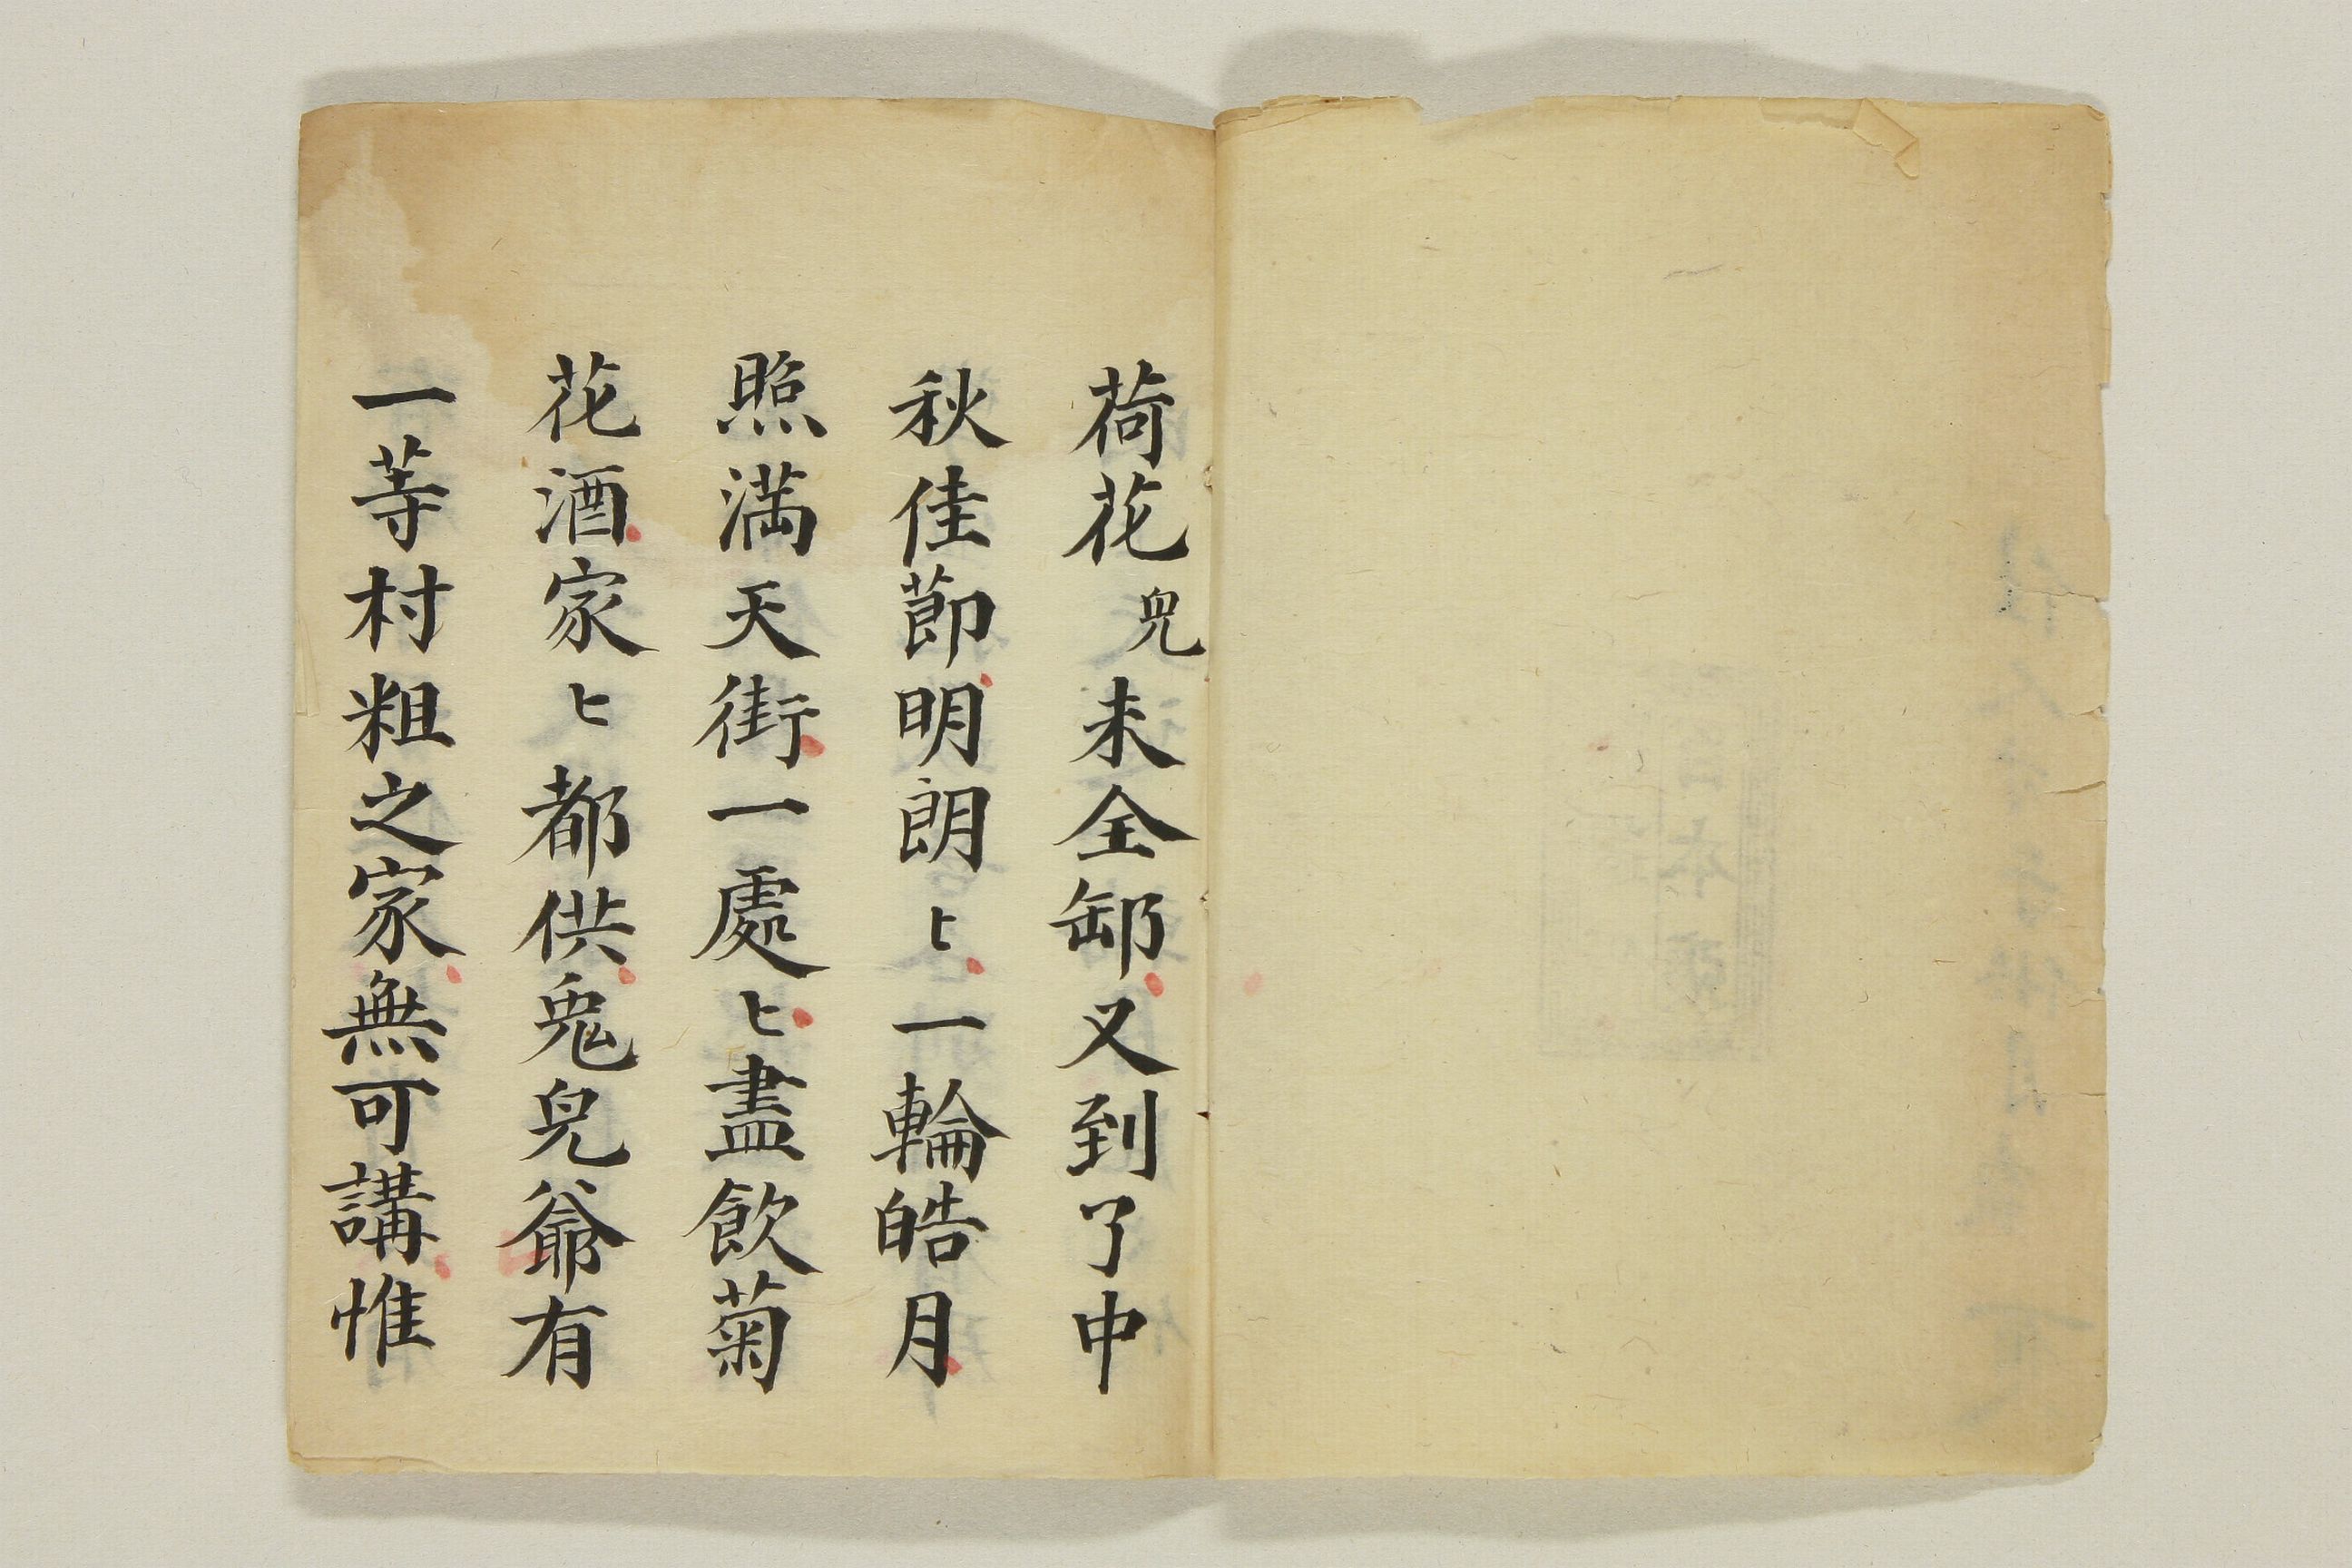 荷花兒未全卸又到了中
秋佳節明朗〻一輪皓月
照滿天街一處〻盡飲菊
花酒家〻都供兎兒爺有
一等村粗之家無可講惟